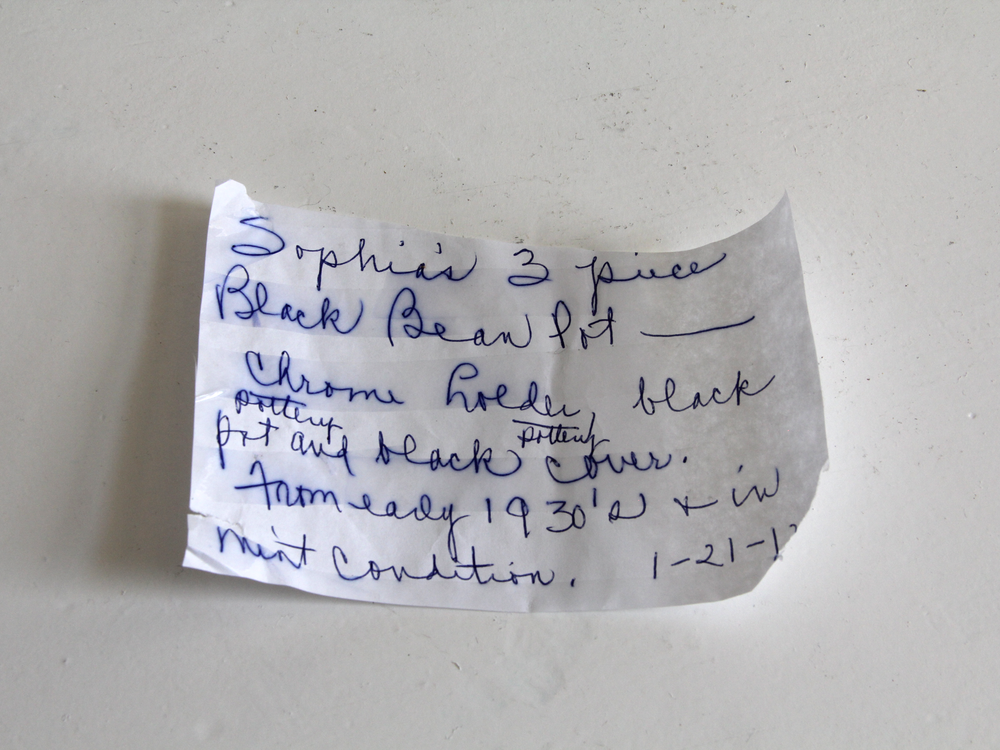 Sophia's 3 piece
Black Bean Pot —
Chrome holder, black
pottery pottery
pot and black cover.
From early 1930's & in
mint condition. 1-21-1